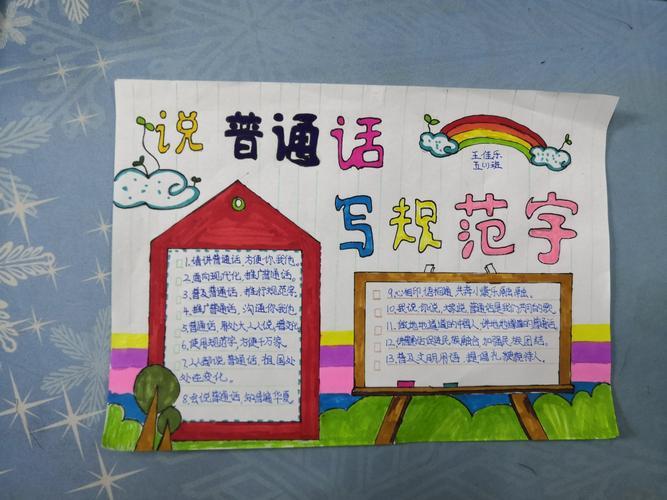 说普通话
写规范字
王佳乐
五(1)班
1.请讲普通话,方便你我他。
2.面向现代化,推广普通话。
3.普及普通话,推行规范字。
4.推广普通话,沟通你我他。
5.普通话,用处大,人人说,
6.使用规范字,方便千万家。
7.人人都说普通话,祖国处
处在变化。
8.会说普通话,知音遍华夏。
9.心相印,语相通,共奔小康乐融融。
10.我说你说,大家说,普通话是我们共同的歌。
11.做地地道道的中国人,讲地地道道的普通话。
12.讲普通话促进民族融合,加强民族团结。
13.普及文明用语,提倡礼貌待人。